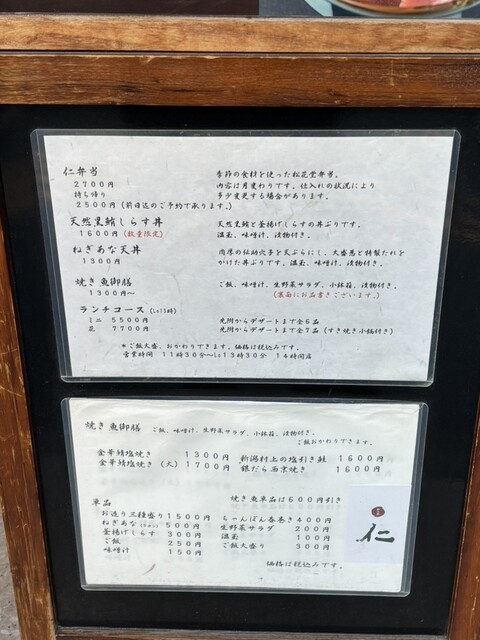 仁弁当
2700円
持ち帰り
2500円(前日迄のご予約で承ります。)
季節の食材を使った松花堂弁当。
内容は月変わりです。仕入れの状況により
多少変更する場合があります。
天然黒鮪しらす丼
1600円(数量限定)
天然黒鮪と釜揚げしらすの丼ぶりです。
温玉、味噌汁、漬物付き。
ねぎあな天丼
1300円
肉厚の伝助穴子を天ぷらにし、大番葱と特製たれを
かけた丼ぶりです。温玉、味噌汁、漬物付き。
焼き魚御膳
1300円~
ご飯、味噌汁、生野菜サラダ、小鉢箱、漬物付き。
(裏面にお品書きございます。)
ランチコース(Lo13時)
ミニ 5500円 先附からデザートまで全6品
花 7700円 先附からデザートまで全7品(すき焼き小鍋付き)
*ご飯大盛、おかわりできます。価格は税込みです。
営業時間 11時30分~Lo13時30分 14時閉店
焼き魚御膳 ご飯、味噌汁、生野菜サラダ、小鉢箱、漬物付き。
ご飯おかわりできます。
金華鯖塩焼き 1300円 新潟村上の塩引き鮭 1600円
金華鯖塩焼き(大) 1700円 銀だら西京焼き 1600円
単品 焼き魚単品は600円引き
お造り三種盛り 1500円 ちゃんばん春巻き 400円
ねぎあな 500円 生野菜サラダ 200円
釜揚げしらす 300円 温玉 100円
ご飯 250円 ご飯大盛り 300円
味噌汁 150円
価格は税込みです。
仁